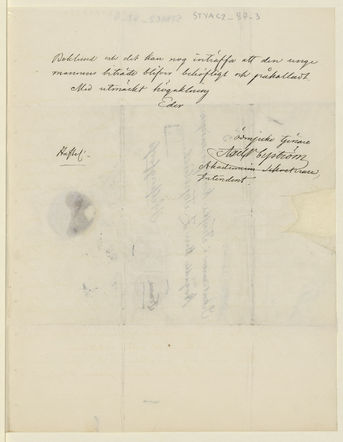 STYACZ_BP_3
Boklund och det kan nog inträffa att den unge
mannens biträde blifver behöfligt och påkalladt.
Med utmärkt högaktning
Eder
ödmjuke tjenare
Axel Nyström
Akademiens Sekreterare
Intendent.